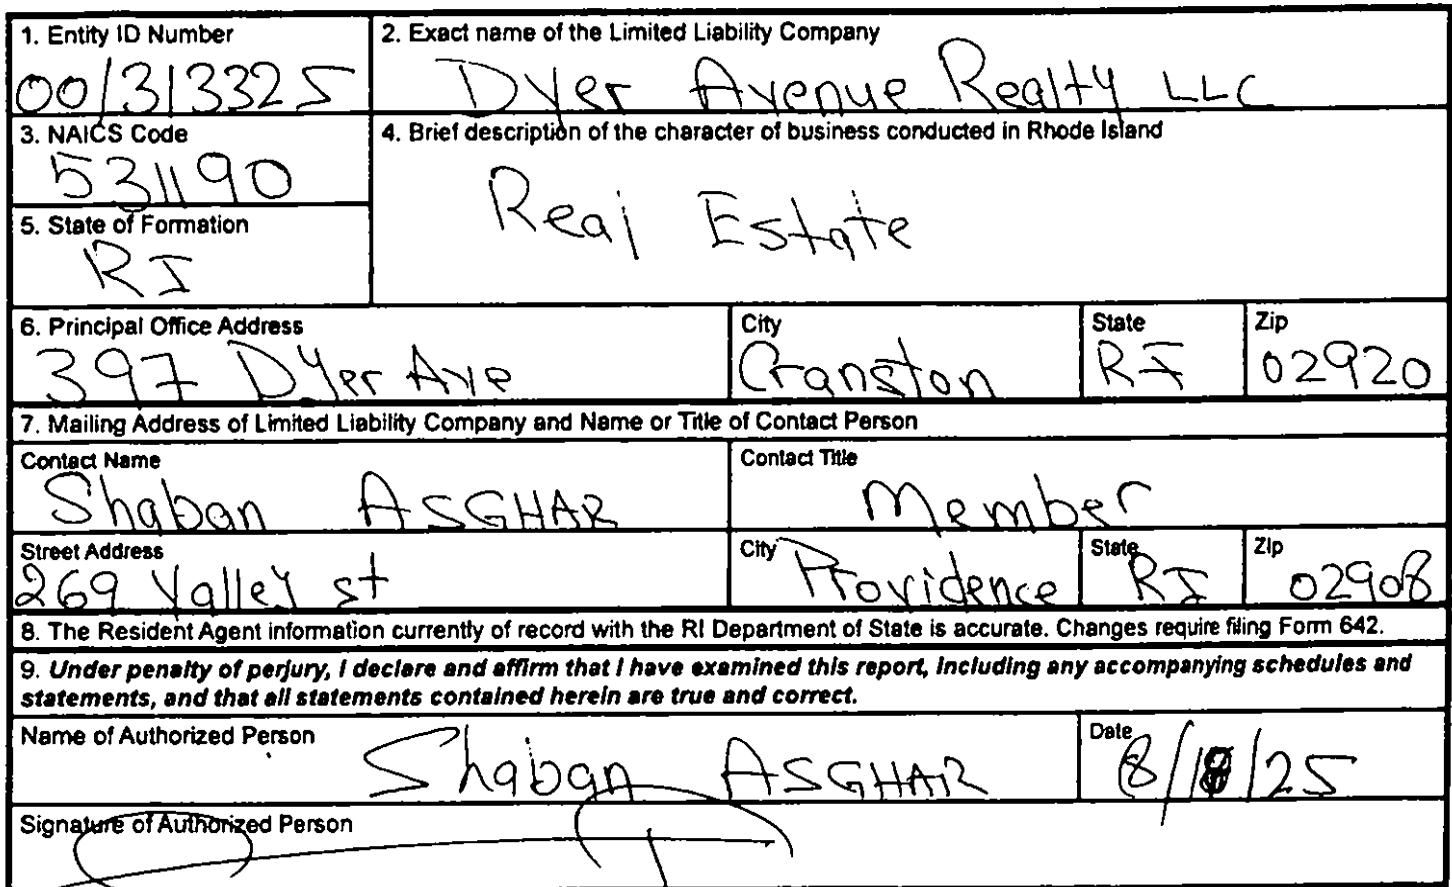 1. Entity ID Number
001313325
2. Exact name of the Limited Liability Company
Dyer Avenue Realty LLC
3. NAICS Code
531190
4. Brief description of the character of business conducted in Rhode Island
Real Estate
5. State of Formation
RI
6. Principal Office Address
397 Dyer Ave
City
Cranston
State
RI
Zip
02920
7. Mailing Address of Limited Liability Company and Name or Title of Contact Person
Contact Name
Shaban ASGHAR
Contact Title
Member
Street Address
269 Valley st
City
Providence
State
RI
Zip
02908
8. The Resident Agent information currently of record with the RI Department of State is accurate. Changes require filing Form 642.
9. Under penalty of perjury, I declare and affirm that I have examined this report, including any accompanying schedules and
statements, and that all statements contained herein are true and correct.
Name of Authorized Person
Shaban ASGHAR
Date
Signature of Authorized Person